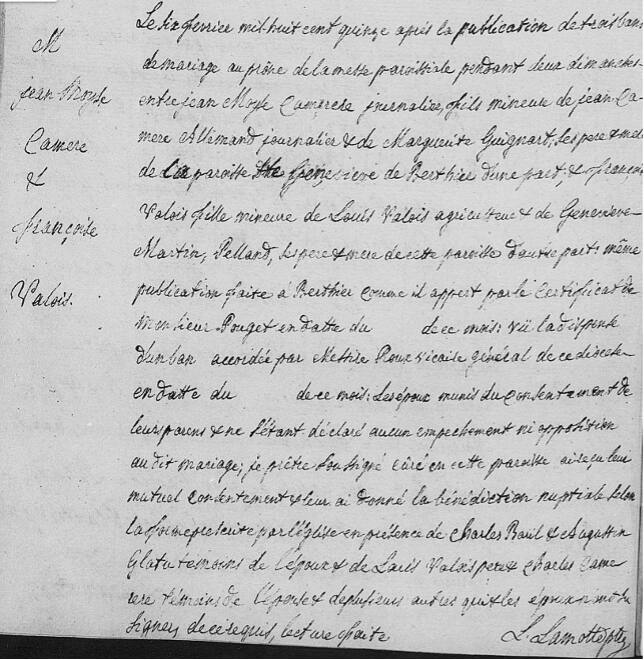 M
jean Moyse
Camere
&
françoise
Valois.
Le six fevrier mil huit cent quinze après la publication de trois bans
de mariage au prône de la messe paroissiale pendant deux dimanches
entre jean Moyse Camerere journalier, fils mineur de jean Ca-
mere Allemand journalier & de Marguerite Guignart, ses pere & mere
de la paroisse Ste Genevieve de Berthier d'une part; & françoise
Valois fille mineure de Louis Valois agriculteur & de Genevieve
Martin, Pelland, ses pere & mere de cette paroisse d'autre part: même
publication faite à Berthier comme il appert par le Certificat de
Monsieur Pouget en datte du de ce mois: vû la dispense
d'un ban accordée par Messire Roux vicaire général de ce diocese
en datte du de ce mois: les époux munis du consentement de
leurs parens & ne s'étant déclaré aucun empechement ni opposition
au dit mariage; je prêtre soussigné curé en cette paroisse ai reçu leur
mutuel consentement & leur ai donné la bénédiction nuptiale selon
la forme prescrite par l'église en présence de Charles Baril & Augustin
Glatu témoins de l'époux & de Louis Valois pere & Charles Came
rere témoins de l'épouse & de plusieurs autres qui & les époux n'ont su
signer, de ce requis, lecture faite
L. Lamotte ptre